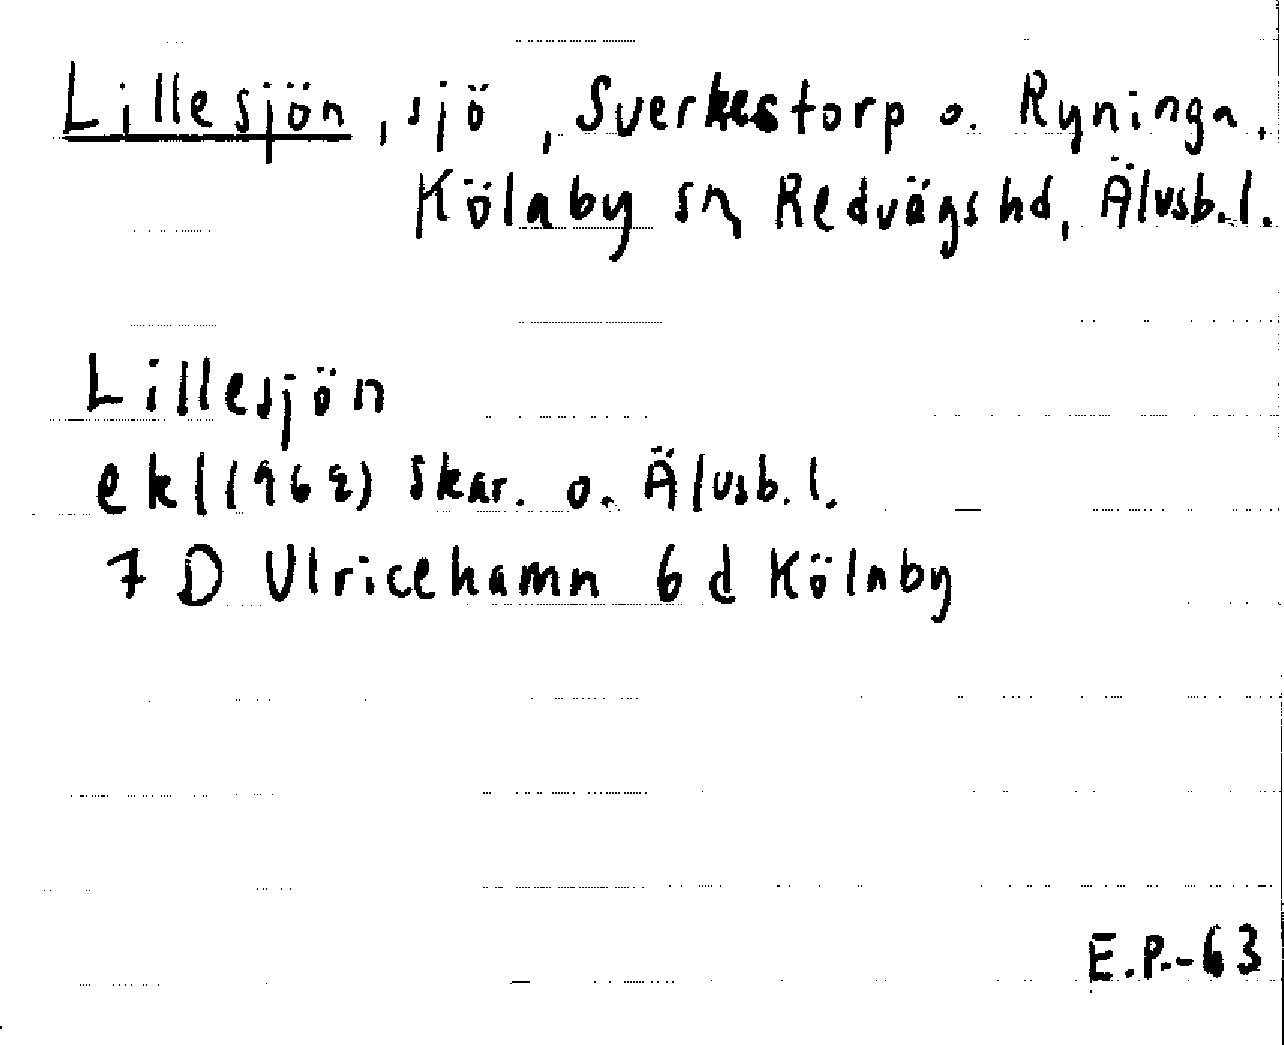 Lillesjön, sjö, Sverkestorp o. Ryninga.
Kölnaby sn Redvägs hd, Älvsb. l.
Lillesjön
ekl (1962) Skar. o. Älvsb. l.
7 D Ulricehamn 6 d Kölnaby
E.P.-63